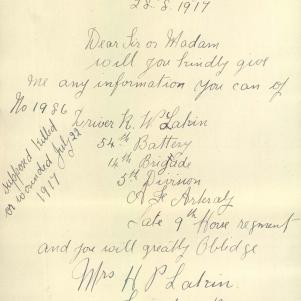 28.8.1917
Dear Sir or Madam
will you kindly give
me any information you can of
No 1986
Driver R. W. Lakin
54th Battery
14th Brigade
5th Division
A I F
Late 9th Horse regment
supposed killed
or wounded July 22
1917
and you will greatly Obbledge
Mrs H P Lakin